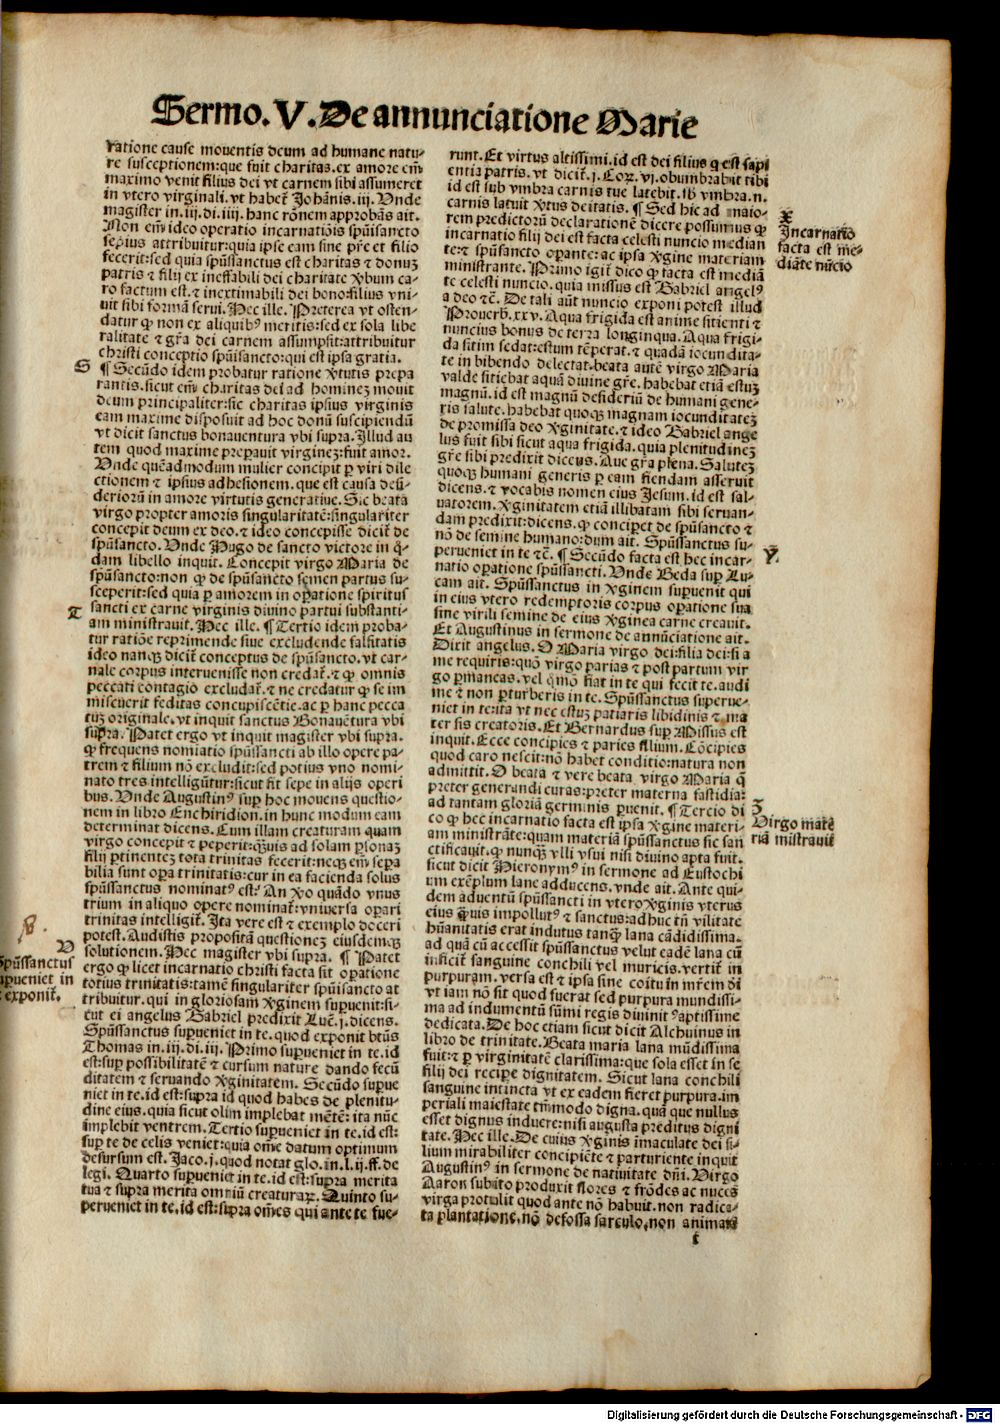 Sermo. V. De annunciatione Marie
ratione cause mouentis deum ad humane natu-
re susceptionem: que fuit charitas. ex amore em̄
maximo venit filius dei vt carnem sibi assumeret
in vtero virginali. vt habet̄ Johānis. iij. Vnde
magister in. iij. di. iiij. hanc rōnem approbās ait.
Non em̄ ideo operatio incarnatiōis spūisancto
sepius attribuitur: quia ipse eam sine pr̄e et filio
fecerit: sed quia spūssanctus est charitas ⁊ donuꝫ
patris ⁊ filij ex ineffabili dei charitate ꝟbum ca-
ro factum est. ⁊ inextimabili dei bono: filius vni-
uit sibi formā serui. Hec ille. Preterea vt osten-
datur ꝙ non ex aliquibꝰ meritis: sed ex sola libe
ralitate ⁊ gr̄a dei carnem assumpsit: attribuitur
christi conceptio spūisancto: qui est ipsa gratia.
S
¶ Secūdo idem probatur ratione ꝟtutis prepa
rantis. sicut em̄ charitas dei ad hominez mouit
deum principaliter: sic charitas ipsius virginis
eam maxime disposuit ad hoc donū suscipiendū
vt dicit sanctus bonauentura vbi supra. Illud au
tem quod maxime preparauit virginez: fuit amor.
Vnde quēadmodum mulier concipit ꝑ viri dile
ctionem ⁊ ipsius adhesionem. que est causa desi-
deriorū in amore virtutis generatiue. Sic beata
virgo propter amoris singularitatē: singulariter
concepit deum ex deo. ⁊ ideo concepisse dicit̄ de
spūsancto. Vnde Hugo de sancto victore in q̄-
dam libello inquit. Concepit virgo Maria de
spūsancto: non ꝙ de spūsancto semen partus su-
sceperit: sed quia ꝑ amorem in oꝑatione spiritus
T
sancti ex carne virginis diuino partui substanti-
am ministrauit. Hec ille. ¶ Tertio idem proba-
tur ratiōe reprimende siue excludende falsitatis
ideo nanqꝫ dicit̄ conceptus de spūsancto. vt car-
nale corpus interuenisse non credat̄. ⁊ ꝙ omnis
peccati contagio excludat̄. ⁊ ne credatur ꝙ se im
miscuerit feditas concupiscētie. ac ꝑ hanc pecca
tuꝫ originale. vt inquit sanctus Bonauētura vbi
supra. Patet ergo vt inquit magister vbi supra.
ꝙ frequens nomiatio spūssancti ab illo opere pa-
trem ⁊ filium nō excludit: sed potius vno nomi-
nato tres intelligūtur: sicut fit sepe in alijs operi
bus. Vnde Augustinꝰ suꝑ hoc mouens questio-
nem in libro Enchiridion. in hunc modum eam
determinat dicens. Cum illam creaturam quam
virgo concepit ⁊ peperit: q̄uis ad solam ꝑsonaꝫ
filij ꝑtinentez tota trinitas fecerit: neqꝫ em̄ sepa
bilia sunt oꝑa trinitatis: cur in ea facienda solus
spūssanctus nominatꝰ est: An ꝟo quādo vnus
trium in aliquo opere nominat̄: vniuersa oꝑari
trinitas intelligit̄. Ita vere est ⁊ exemplo doceri
potest. Audistis propositā questionez eiusdemqꝫ
V
solutionem. Hec magister vbi supra. ¶ Patet
Spūssanctus
supueniet in
te exponit̄.
ergo ꝙ licet incarnatio christi facta sit oꝑatione
totius trinitatis: tamē singulariter spūisancto at
tribuitur. qui in gloriosam ꝟginem suꝑuenit: si-
cut ei angelus Gabriel predixit Luē. j. dicens.
Spūssanctus suꝑueniet in te. quod exponit btūs
Thomas in. iij. di. iij. Primo suꝑueniet in te. id
est: suꝑ possibilitatē ⁊ cursum nature dando fecū
ditatem ⁊ seruando ꝟginitatem. Secūdo suꝑue
niet in te. id est: supra id quod habes de plenitu-
dine eius. quia sicut olim implebat mētē: ita nūc
implebit ventrem. Tertio suꝑueniet in te. id est:
suꝑ te de celis veniet: quia om̄e datum optimum
desursum est. Jaco. j. quod notat glo. in. l. ij. ff. de
legi. Quarto suꝑueniet in te. id est: supra merita
tua ⁊ supra merita omniū creaturaꝝ. Quinto su-
perueniet in te. id est: supra om̄es qui ante te fue-
runt. Et virtus altissimi. id est dei filius q̄ est sapi
entia patris. vt dicit̄. j. Coꝝ. vj. obumbrabit tibi
id est sub vmbra carnis tue latebit. sb̄ vmbra. n.
carnis latuit ꝟtus deitatis. ¶ Sed hic ad maio-
X
Incarnatio
facta est me-
diāte nūcio
rem predictorū declarationē dicere possumus ꝙ
incarnatio filij dei est facta celesti nuncio median
te: ⁊ spūsancto oꝑante: ac ipsa ꝟgine materiam
ministrante. Primo igit̄ dico ꝙ facta est mediā
te celesti nuncio. quia missus est Gabriel angelꝰ
a deo ⁊c̄. De tali aūt nuncio exponi potest illud
Prouerb. xxv. Aqua frigida est anime sitienti ⁊
nuncius bonus de terra longinqua. Aqua frigi-
da sitim sedat: estum tēperat. ⁊ quadā iocundita-
te in bibendo delectat. beata autē virgo Maria
valde sitiebat aquā diuine gr̄e. habebat etiā estuꝫ
magnū. id est magnū desideriū de humani gene-
ris salute. habebat quoqꝫ magnam iocunditatez
de promissa deo ꝟginitate. ⁊ ideo Gabriel ange
lus fuit sibi sicut aqua frigida. quia plenitudinez
gr̄e sibi predixit dicens. Aue gr̄a plena. Salutez
quoqꝫ humani generis ꝑ eam fiendam asseruit
dicens. ⁊ vocabis nomen eius Jesum. id est sal-
uatorem. ꝟginitatem etiā illibatam sibi seruan-
dam predixit: dicens. ꝙ conciꝑet de spūsancto ⁊
nō de semine humano: dum ait. Spūssanctus su-
Y.
perueniet in te ⁊c̄. ¶ Secūdo facta est hec incar-
natio oꝑatione spūssancti. Vnde Beda suꝑ Lu-
cam ait. Spūssanctus in ꝟginem suꝑuenit qui
in eius vtero redemptoris corpus oꝑatione sua
sine virili semine de eius ꝟginea carne creauit.
Et Augustinus in sermone de annūciatione ait.
Dixit angelus. O Maria virgo dei: filia dei: si a
me requiris: quō virgo parias ⁊ post partum vir
go ꝑmaneas. vel qūo fiat in te qui fecit te. audi
me ⁊ non ꝑturberis in te. Spūssanctus superue-
niet in te: ita vt nec estuꝫ patiaris libidinis ⁊ ma
ter sis creatoris. Et Bernardus suꝑ Missus est
inquit. Ecce concipies ⁊ paries filium. Cōcipies
quod caro nescit: nō habet conditio: natura non
admittit. O beata ⁊ vere beata virgo Maria q̄
preter generandi curas: preter materna fastidia:
ad tantam gloriā germinis ꝑuenit. ¶ Tercio di
Z
Virgo mate
riā mistrauit
co ꝙ hec incarnatio facta est ipsa ꝟgine materi-
am ministrāte: quam materiā spūssanctus sic san
ctificauit. ꝙ nunqꝫ vlli vsui nisi diuino apta fuit.
sicut dicit Hieronymꝰ in sermone ad Eustochi
um exēplum lane adducens. vnde ait. Ante qui-
dem aduentū spūssancti in vtero ꝟginis vterus
eius q̄uis impollutꝰ ⁊ sanctus: adhuc tn̄ vilitate
hūanitatis erat indutus tanqꝫ lana cādidissima.
ad quā cū accessit spūssanctus velut eadē lana cū
inficit̄ sanguine conchili vel muricis. vertit̄ in
purpuram. versa est ⁊ ipsa sine coitu in mr̄em dei
vt iam nō sit quod fuerat sed purpura mundissi-
ma ad indumentū sūmi regis diuinitꝰ aptissime
dedicata. De hoc etiam sicut dicit Alchuinus in
libro de trinitate. Beata maria lana mūdissima
fuit: ⁊ ꝑ virginitatē clarissima: que sola esset in se
filij dei reciꝑe dignitatem. Sicut lana conchili
sanguine intincta vt ex eadem fieret purpura. im
periali maiestate tm̄modo digna. quā que nullus
esset dignus induere: nisi augusta preditus digni
tate. Hec ille. De cuius ꝟginis imaculate dei fi-
lium mirabiliter concipiēte ⁊ parturiente inquit
Augustinꝰ in sermone de natiuitate dn̄i. Virgo
Aaron subito produxit flores ⁊ frōdes ac nuces
virga protulit quod ante nō habuit. non radica-
ta plantatione. nō defossa sarculo. non animata
Digitalisierung gefördert durch die Deutsche Forschungsgemeinschaft - DFG